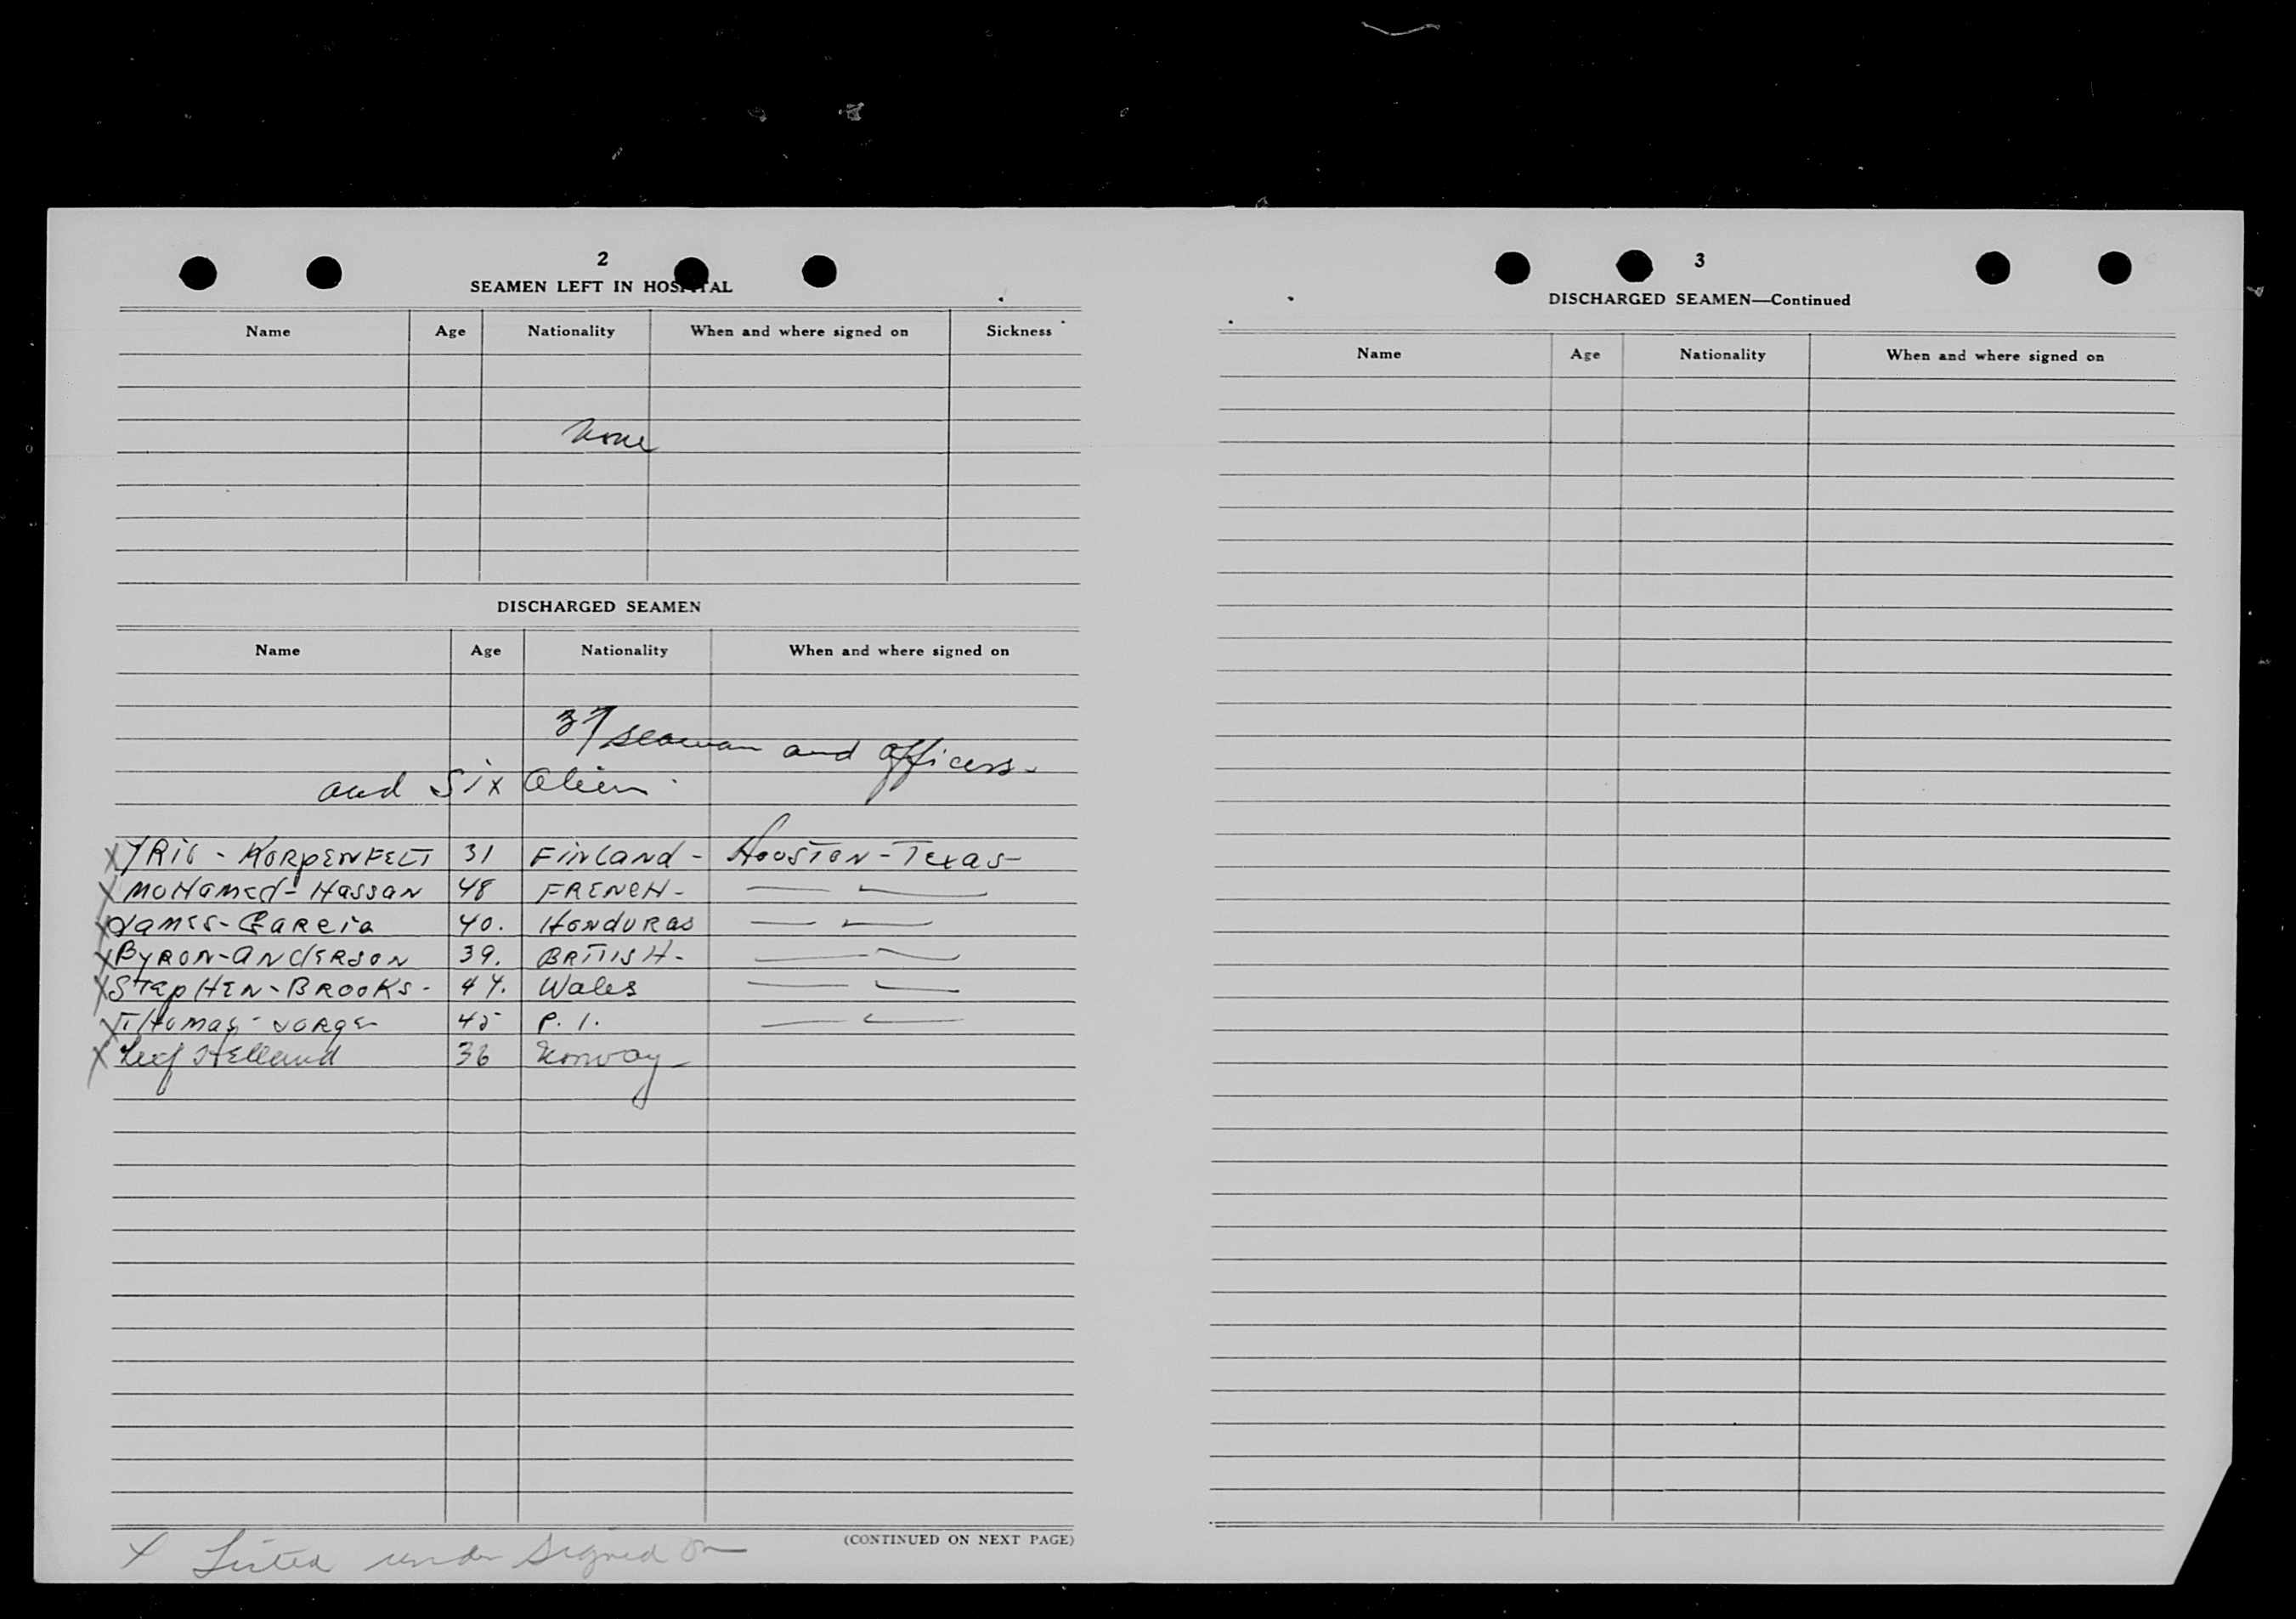 2
SEAMEN LEFT IN HOSPITAL
Name Age Nationality When and where signed on Sickness
None
DISCHARGED SEAMEN
Name Age Nationality When and where signed on
37 seaman and officers-
and Six Alien
X - KORPENFELT 31 FINLAND - HOUSTON - TEXAS
X MOHAMED - HASSAN 48 FRENCH - — —
X JAMES - GARCIA 40. HONDURAS — —
X BYRON - ANDERSON 39. BRITISH - — —
X STEPHEN - BROOKS - 47. Wales — —
X THOMAS - JORGE 45 P. I. — —
X Leif Helland 36 Norway
(CONTINUED ON NEXT PAGE)
X Listed under signed on
3
DISCHARGED SEAMEN—Continued
Name Age Nationality When and where signed on